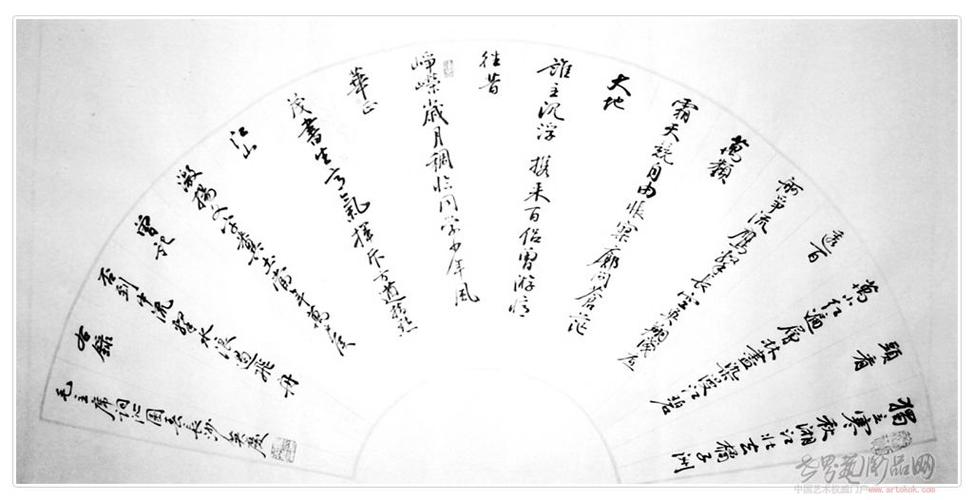 獨立寒秋湘江北去橘子洲
頭看
萬山紅遍層林盡染漫江碧
透百
舸爭流鷹擊長空魚翔淺底
萬類
霜天競自由悵寥廓問蒼茫
大地
誰主沉浮攜來百侶曾游憶
往昔
崢嶸歲月稠恰同學少年風
華正
茂書生意氣揮斥方遒指點
江山
激揚文字糞土當年萬戶侯
曾記
否到中流擊水浪遏飛舟
右錄
毛主席詞沁園春長沙
中国艺术权威门户 www.artokok.com